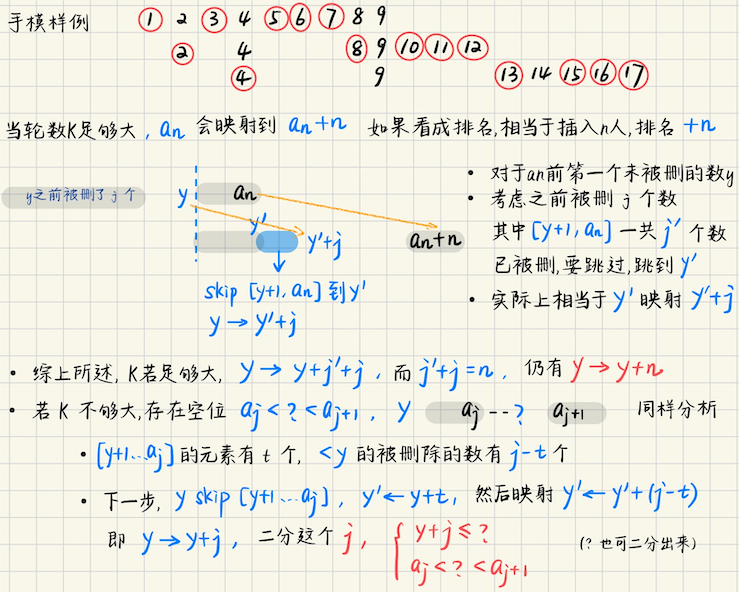 手模样例 1 2 3 4 5 6 7 8 9
2 4 8 9 10 11 12
4 9 13 14 15 16 17
当轮数K足够大, an 会映射到 an+n 如果看成排名,相当于插入n人,排名 +n
y之前被删了 j 个
y an
y' y'+j an+n
skip [y+1, an] 到 y'
y → y'+j
• 对于an前第一个未被删的数y
• 考虑之前被删 j 个数
其中 [y+1, an] 一共 j' 个数
已被删,要跳过,跳到 y'
• 实际上相当于 y' 映射 y'+j
• 综上所述, K若足够大, y → y+j'+j, 而 j'+j=n, 仍有 y → y+n
• 若 K 不够大,存在空位 aj < ? < aj+1, y aj --? aj+1 同样分析
• [y+1...aj] 的元素有 t 个, <y 的被删除的数有 j-t 个
• 下一步, y skip [y+1...aj], y' ← y+t, 然后映射 y' ← y'+(j-t)
即 y → y+j, 二分这个 j, { y+j ≤ ?
aj < ? < aj+1 (? 也可二分出来)